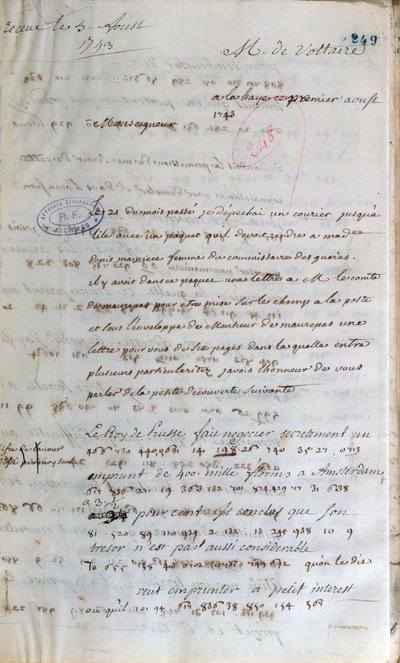 receue le 5. Aoust
1743
249
M. de Voltaire
a la haye ce premier aoust
1743
Monseigneur
248
AFFAIRES ETRANGERES
R.F.
ARCHIVES
Le 21 du mois passé je depéchai un courier jusqu'à
lile avec un paquet quil devoit rendre a mad^e
denis ma niece femme du commissaire des guerres.
il y avoit dans ce paquet une lettre a M le comte
de maurepas pour etre mise sur le champ a la poste
et sous l'enveloppe de Monsieur de maurepas une
lettre pour vous de six pages dans laquelle entre
plusieurs particularitez javois lhonneur de vous
parler de la petite decouverte suivante
Le Roy de Prusse fait negocier secretement un
466 730 440 0631 14 198 26 740 35 27
emprunt de 400 mille florins a Amsterdam
31 638
a 3 1/2
pour cent. c'est que son
81 520 89 10 939 2 132 13 938 10 9
tresor n'est pas aussi considerable
70 655 138 40
qu'on le dit
veut emprunter a petit interest
ou qu'il 301 94 836 38 850 154 567